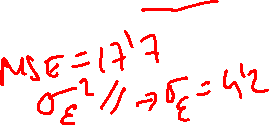 MSE = 17'7
σ_ε² // → σ_ε = 4'2